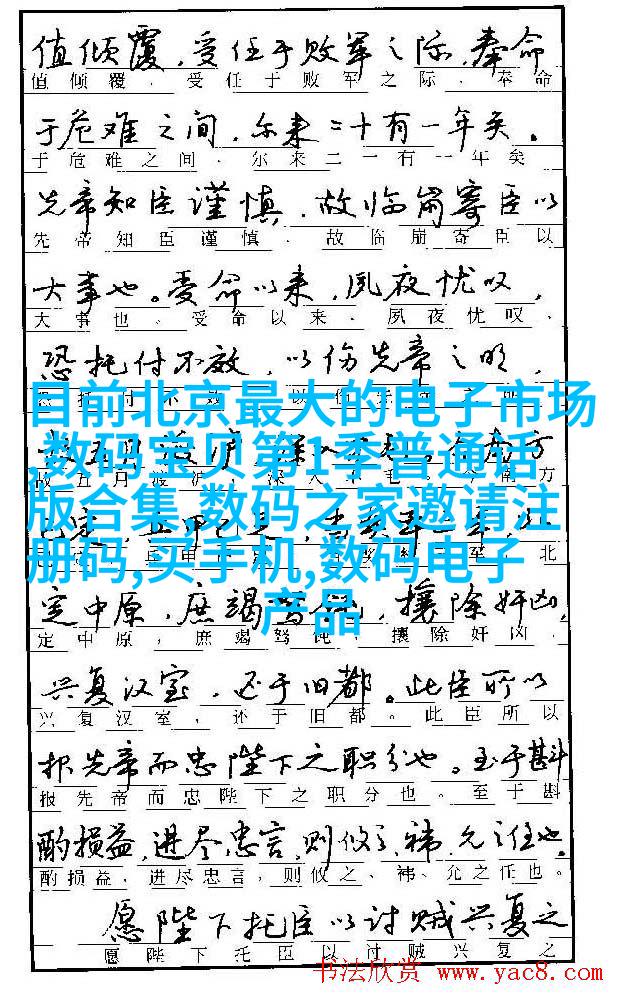 值倾覆,受任于败军之际,奉命
值倾覆.受任于败军之际.奉命
于危难之间,尔来二十有一年矣。
于危难之间.尔来二一有一年矣
先帝知臣谨慎,故临崩寄臣以
先帝知臣谨慎.故临崩寄臣以
大事也。受命以来,夙夜忧叹,
大事也.受命以来.夙夜忧叹.
恐托付不效,以伤先帝之明,
目前北京最大的电子市场
,数码宝贝第1季普通话
版合集,数码之家邀请注
册码,买手机,数码电子
产品
定中原,庶竭驽钝,攘除奸凶,
定中原,庶竭驽钝,攘除奸凶.
兴复汉室,还于旧都。此臣所以
兴复汉室,还于旧都。此臣所以
报先帝而忠陛下之职分也。至于斟
报先帝而忠陛下之职分也。至于斟
酌损益,进尽忠言,则攸之、祎、允之任也。
酌损益.进尽忠言,则攸之、祎、允之任也。
愿陛下托臣以讨贼兴复之
愿陛下托臣以讨贼兴复之
书法欣赏 www.yac8.com